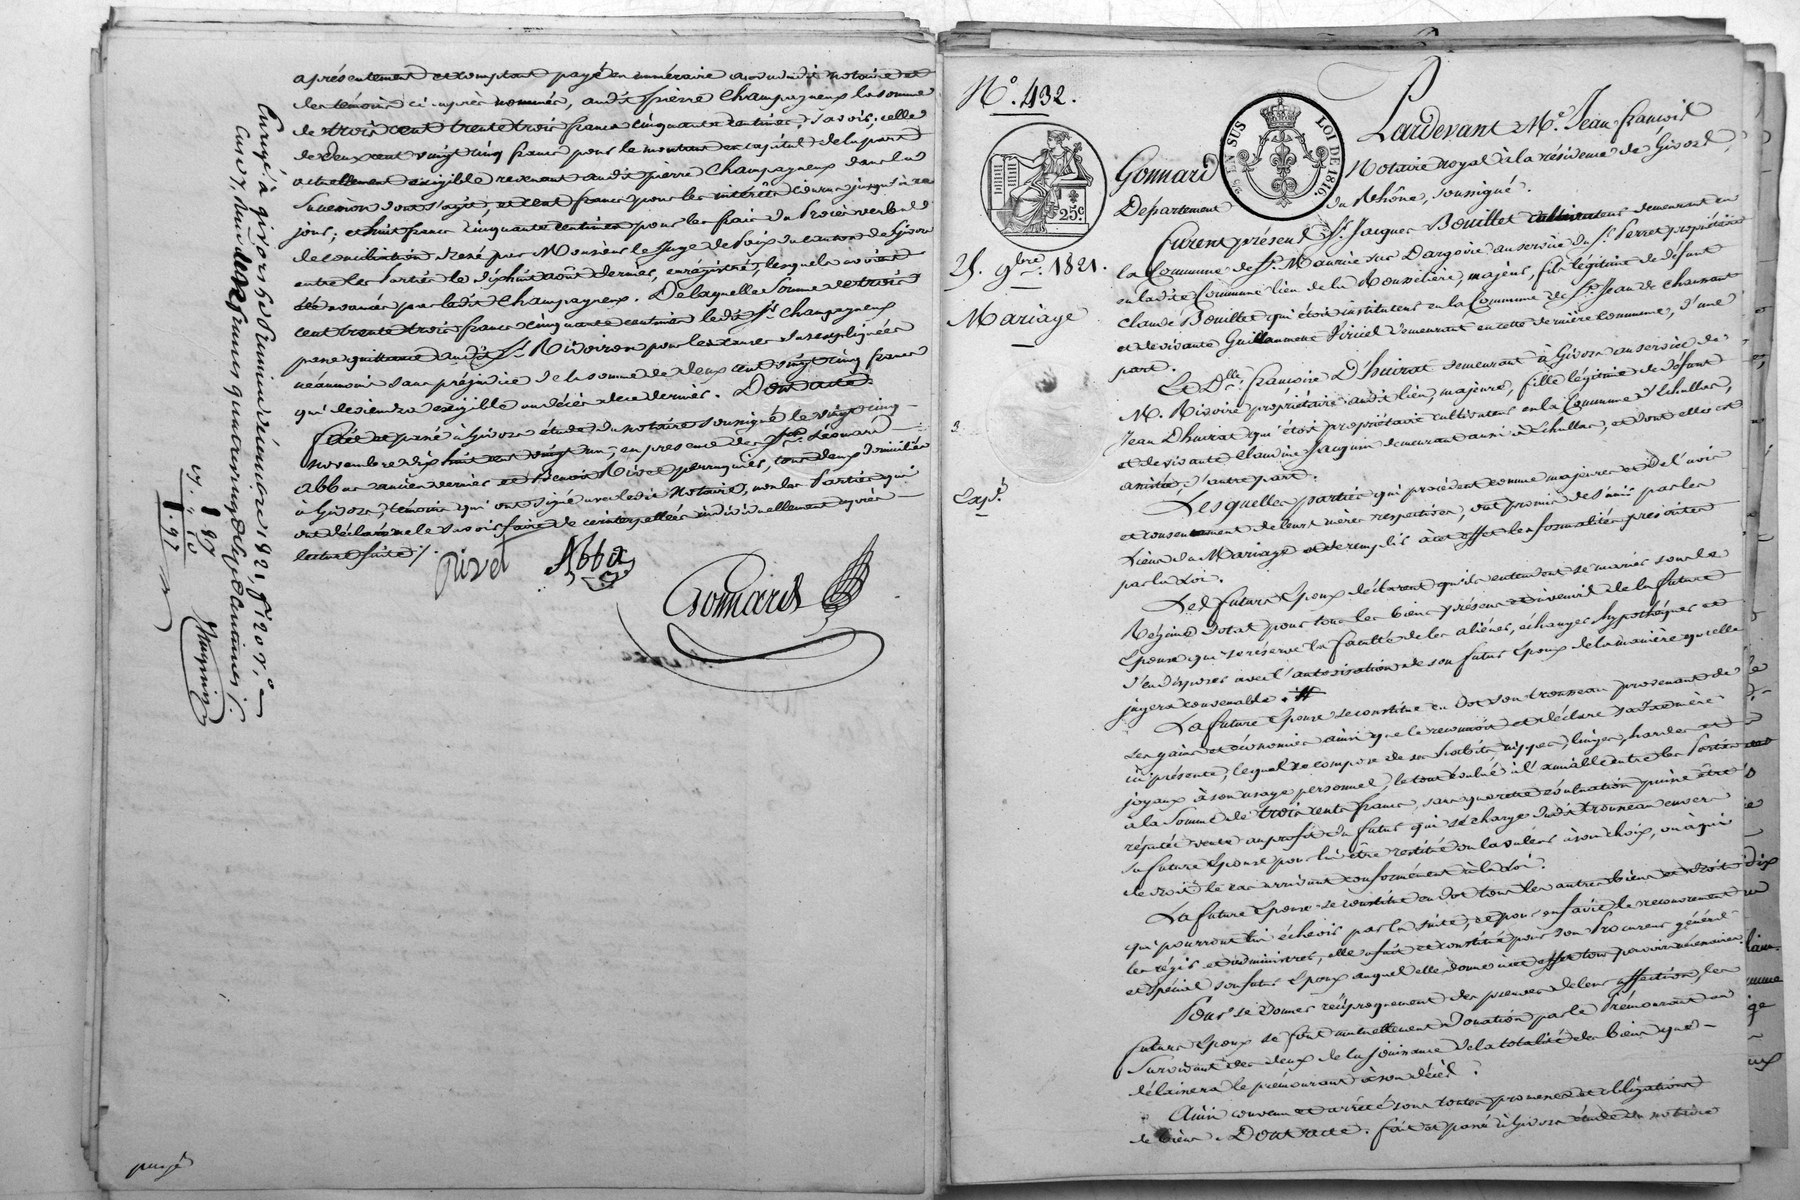 a présentement et comptant payé en numéraire au vu du dit notaire et
des témoins ci après nommés, au dit Spierre Champagneux la somme
de trois cent trente trois francs cinquante centimes, savoir; celle
de deux cent vingt cinq francs pour le montant en capital de la part
actuellement exigible revenant au dit pierre Champagneux dans la
succession dont s'agit et cent francs pour les intérêts courus jusqu'à ce
jour; et huit francs cinquante centimes pour les frais du Procès verbal
de conciliation dressé par Monsieur le Juge de Paix du canton de Givors
entre les Parties le dix huit août dernier, enrégistré, lesquels avoient
été avancés par le dit Champagneux. De laquelle somme de trois
cent trente trois francs cinquante centimes le dit Sr. Champagneux
passe quittance au dit Sr. Rivoiron pour les causes susexpliquées
néanmoins sans préjudice de la somme de deux cent vingt cinq francs
qui deviendra exigible au décès de ce dernier. Dont acte.
Fait et passé à Givors étude du notaire soussigné le vingt cinq
novembre dix huit cent vingt un, en présence de Léonard
Abba ancien et Benoit Rivet perruquier, tous deux domiciliés
à Givors, témoins qui ont signé avec le dit Notaire, non les Parties qui
ont déclaré ne le savoir faire de ce interpellées individuellement après
lecture faite /.
Rivet Abba
Gonnard
Enregé. à givors le Premier décembre 1821, fo. 20 Ro.
Case 7. Reçu deux francs quatre vingt dix sept centimes /.
1 87
10
1.97
N°. 432.
25 EN SUS LOI DE 1816.
25c.
25. 9bre. 1821.
Mariage
3
Exp.
Pardevant Me. Jean françois
Gonnard Notaire royal à la résidence de Givors,
Departement du Rhône, soussigné.
Furent présents Sr. Jacques Bouillet cultivateur demeurant en
la Commune de St. Maurice sur Dargoire au service du Sr. Perret propriétaire
en la dite Commune lieu de la Roussilière, majeur, fils légitime de défunt
Claude Bouillet qui étoit instituteur en la Commune de St. Jean de chaussan
et de vivante Guillaumette Piriel demeurant en cette dernière Commune, d'une
part.
Et Dlle. françoise D'huirat demeurant à Givors au service de
M. Rivoire propriétaire au dit lieu, majeure, fille légitime de défunt
Jean Dhuirat qui étoit propriétaire cultivateur en la Commune d'Echallas,
et de vivante Claudine Jacquin demeurant aussi à Echallas, et dont elle est
assistée, d'autre part.
Lesquelles parties qui procèdent comme majeures et de l'avis
et consentement de leurs mères respectives, ont promis de s'unir par les
Liens du Mariage et de remplir à cet effet les formalités prescrites
par la Loi.
Les futurs Epoux déclarent qu'ils entendent se marier sous le
Régime dotal pour tous les biens présens et à venir de la future
Epouse qui se réserve la faculté de les aliéner, échanger, hypothéquer et
d'en disposer avec l'autorisation de son futur Epoux de la manière qu'elle
jugera convenable.
La future Epouse se constitue en Dot son trousseau provenant de
ses gains et économies ainsi que le reconnoit et déclare sa dte mère
ici présente, lequel se compose de ses habits, nippes, linges, hardes et
joyaux à son usage personnel, le tout évalué à l'amiable entre les Parties
à la Somme de trois cents francs, sans que cette évaluation puisse être
réputée vente au profit du futur qui se charge du dit trousseau envers
sa future Epouse pour lui être restitué ou la valeur à son choix, ou à qui
de droit le cas arrivant conformément à la Loi.
La future Epouse se constitue en dot tous les autres biens et droits
qui pourront lui échoir par la suite, et pour en faire le recouvrement
les régir et administrer, elle a fait et constitué pour son Procureur général
et spécial son futur Epoux auquel elle donne à cet effet tous pouvoirs nécessaires.
Pour se donner réciproquement des preuves de leur affection, les
futurs Epoux se font mutuellement donation par le Prémourant au
Survivant des deux de la jouissance de la totalité des biens que
délaissera le prémourant à son décès.
Ainsi convenu et arrêté sous toutes promesses et obligations
de biens. Dont acte. fait et passé à Givors étude du notaire